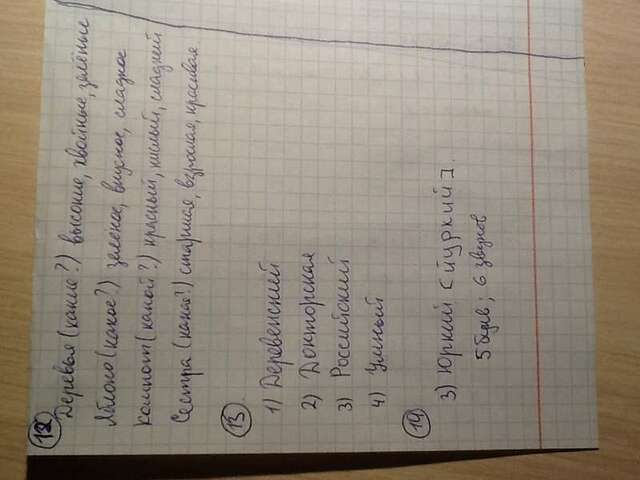 12
Деревья (какие?) высокие, хвойные, зелёные
Яблоко (какое?) зеленое, вкусное, сладкое
Компот (какой?) красный, кислый, сладкий
Сестра (какая?) старшая, взрослая, красивая
13
1) Деревенский
2) Докторская
3) Российский
4) Умный
14
3) Юркий [йуркий].
5 букв; 6 звуков